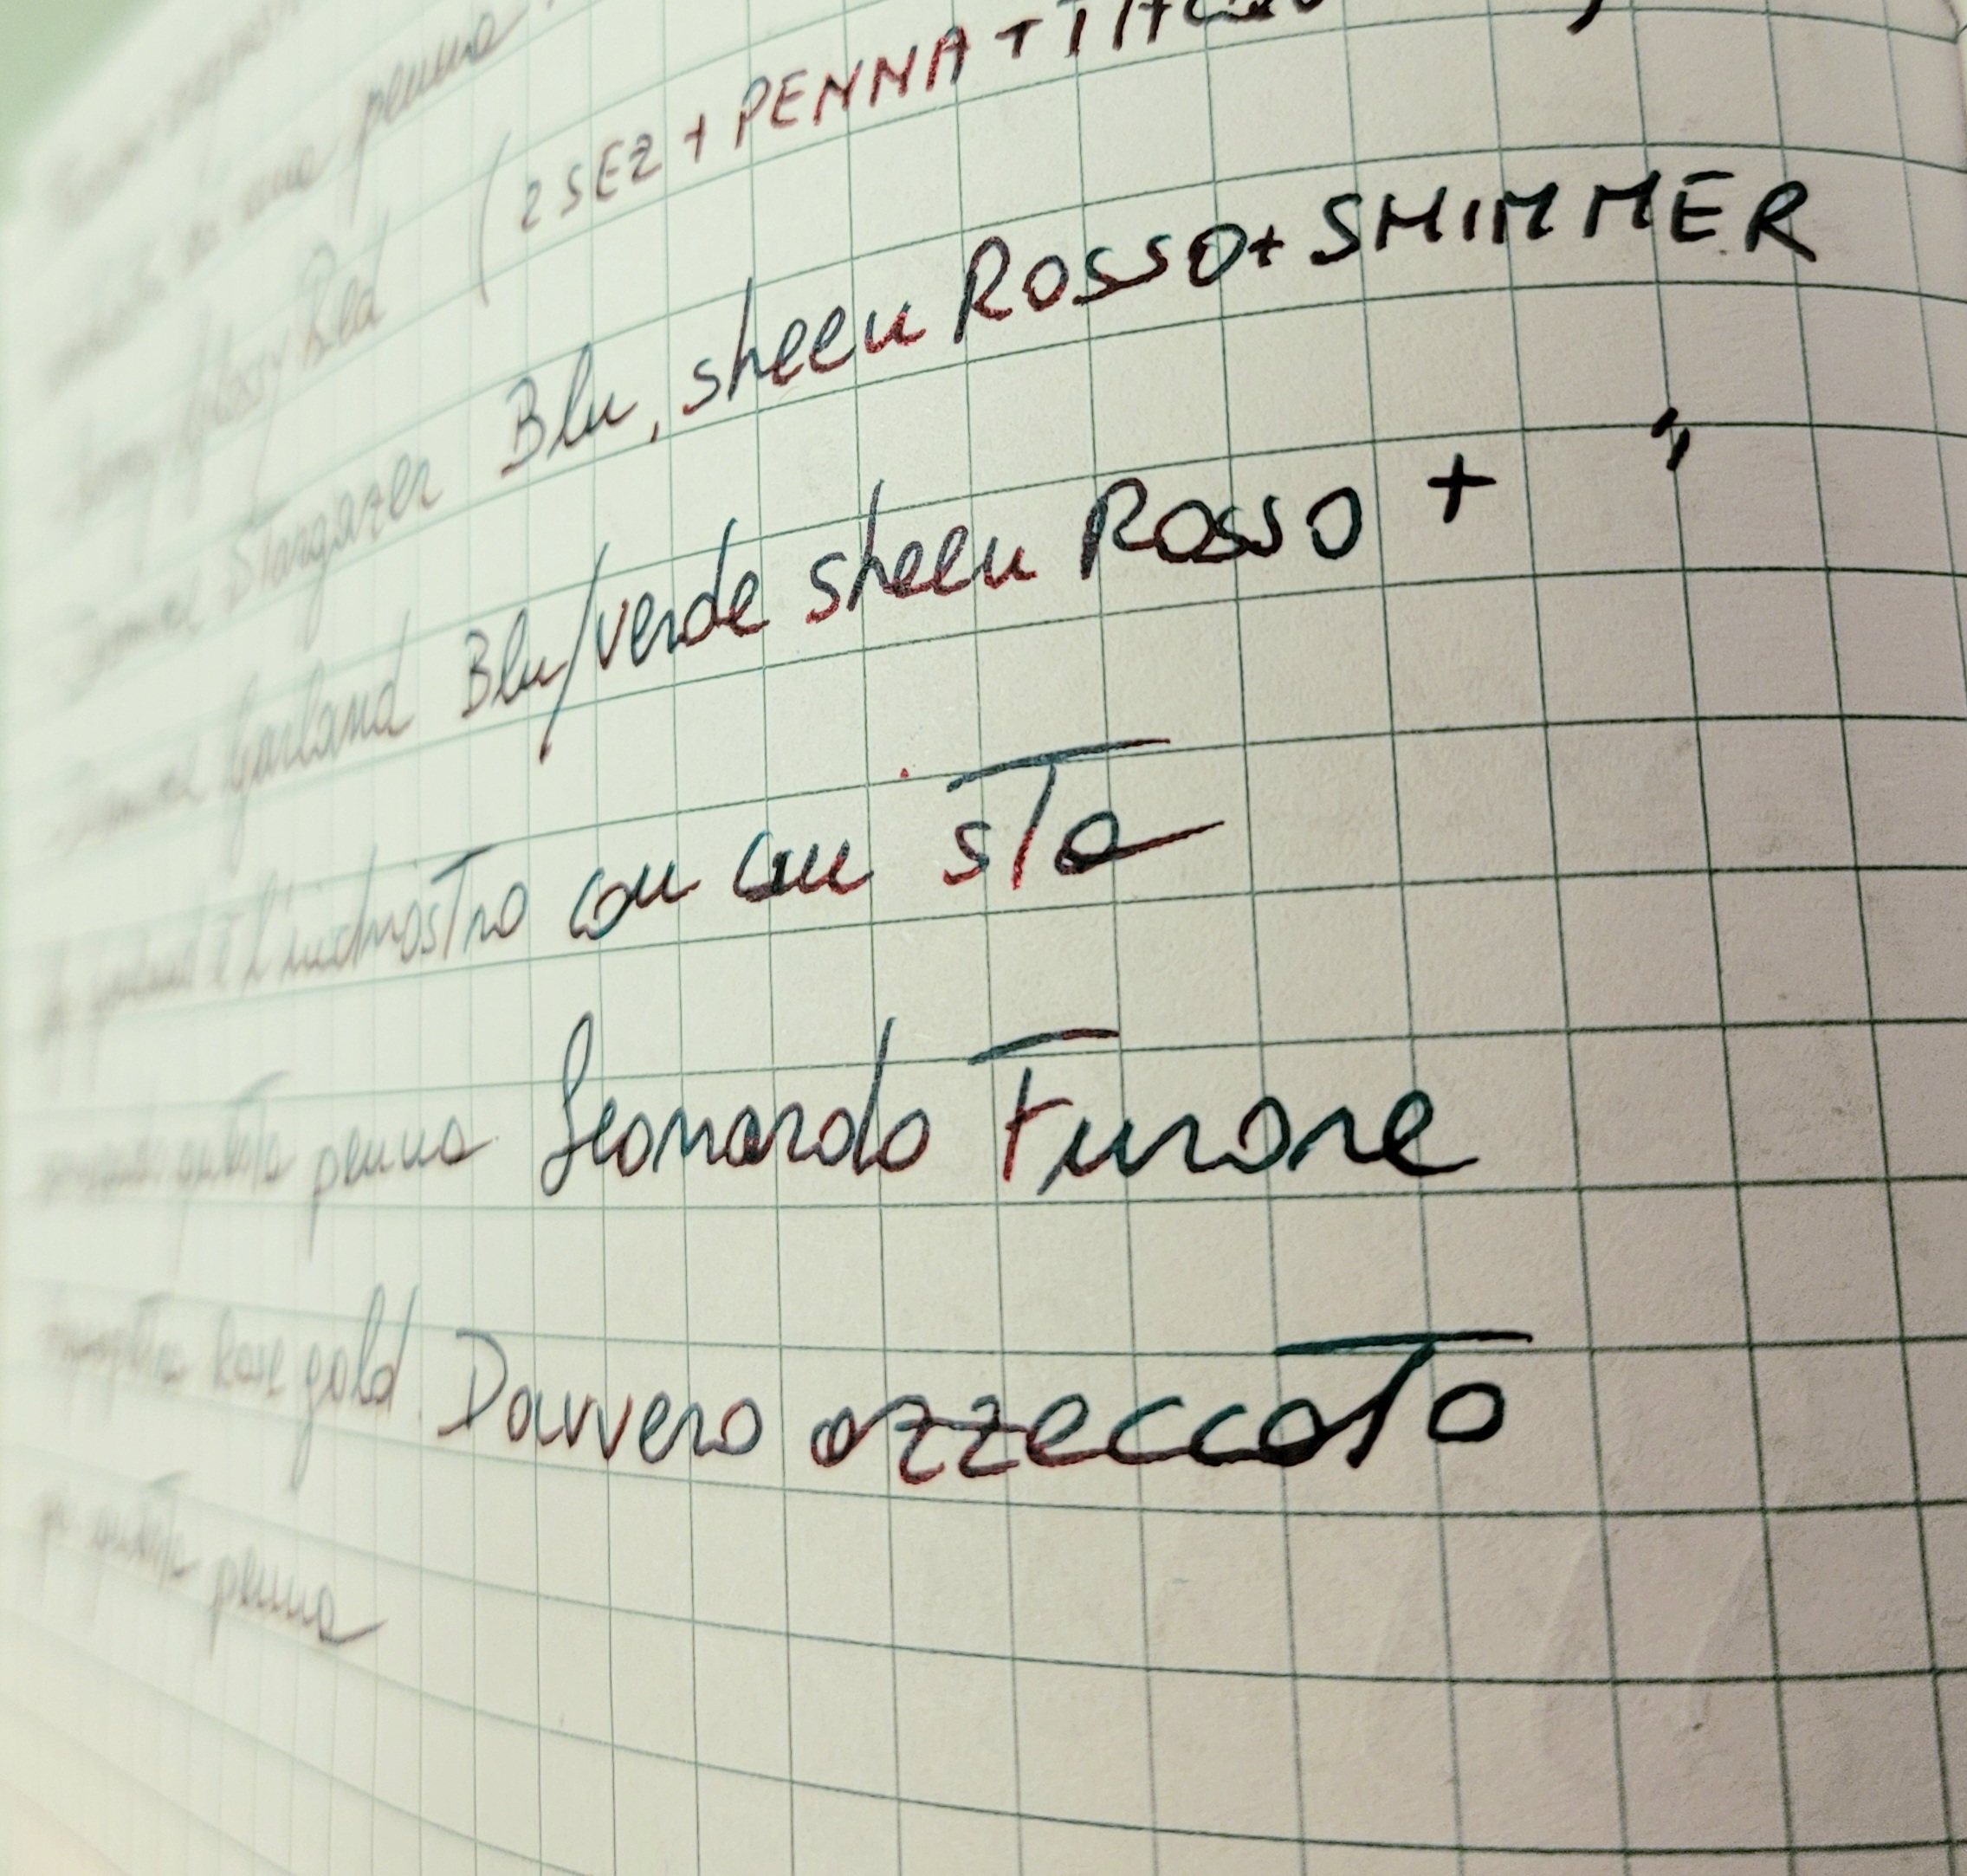 una penna
Glossy Red (2 SEZ + PENNA +
Stargazer Blu, sheen ROSSO + SHIMMER
Garland Blu/verde sheen ROSSO + "
l'inchiostro con cui sto
questa penna Leonardo Furore
Rose gold. Davvero azzeccato
questa penna